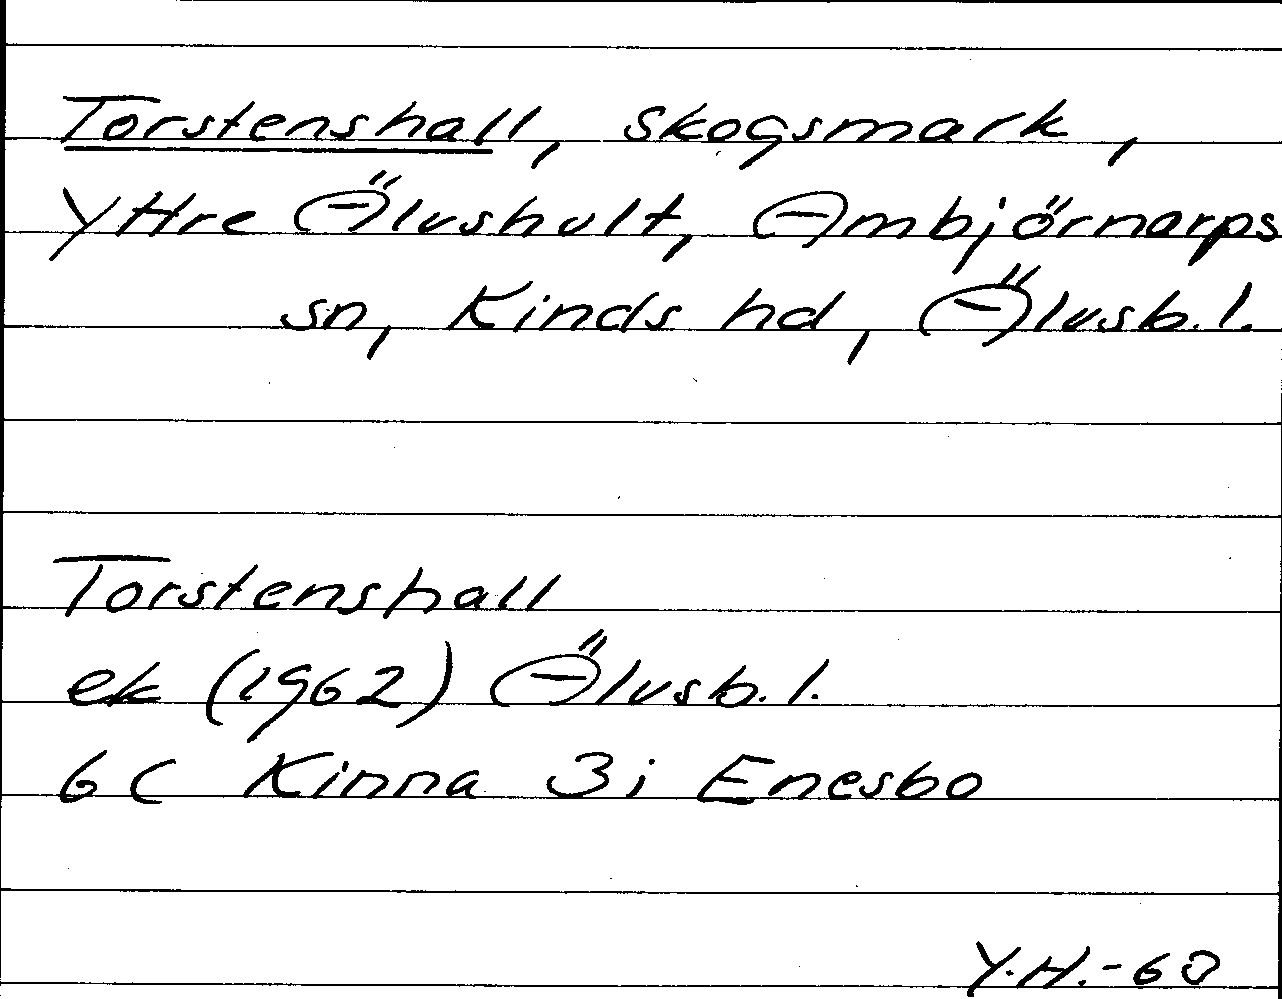 Torstenshall, skogsmark,
Yttre Älvshult, Ambjörnarps
sn, Kinds hd, Älvsb.l.
Torstenshall
ek (1962) Älvsb.l.
6C Kinna 3i Enesbo
Y.H.-63